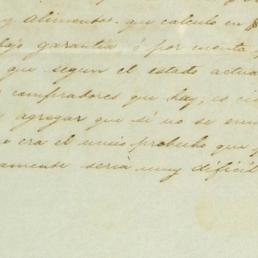 y alimentos. que calculo en
bajo garantía ó por cuenta
que segun el estado actua
compradores que hay, es
agregar que si no se
era el unico probable que
amente sería muy dificil